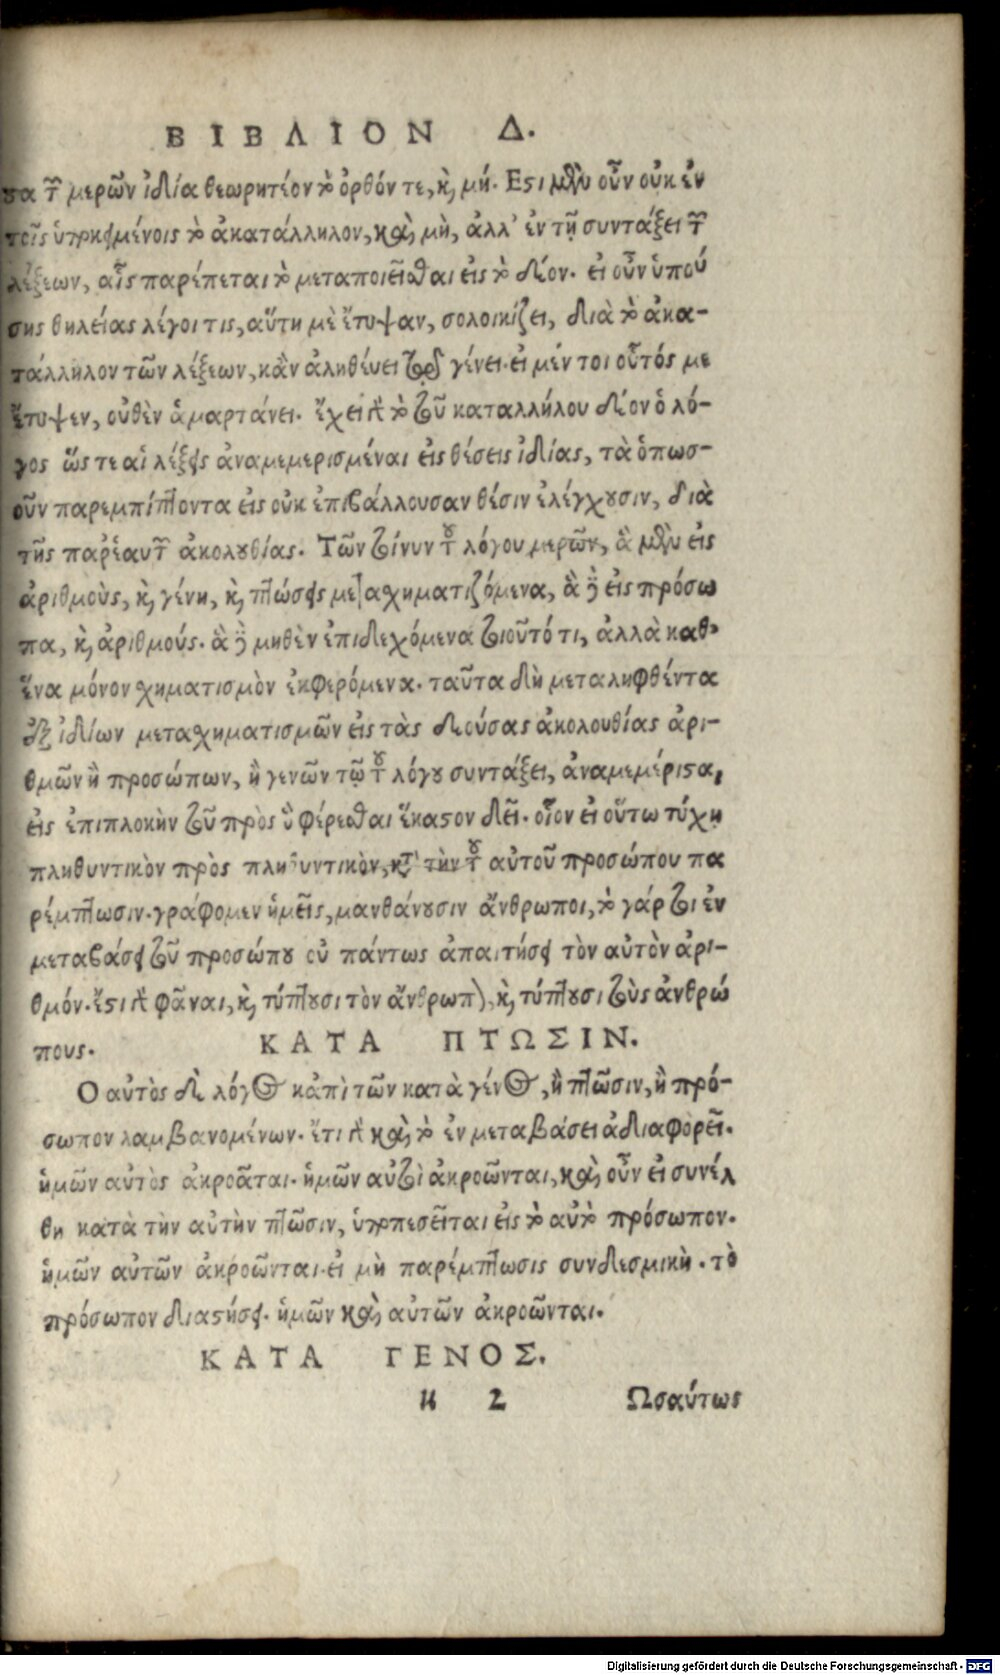 ΒΙΒΛΙΟΝ Δ.
τῶν μερῶν ἰδία θεωρητέον τὸ ὀρθόν τε, καὶ μή. Εστι μὲν οὖν οὐκ ἐν
τοῖς ὑποκειμένοις τὸ ἀκατάλληλον, καὶ μὴ, ἀλλ' ἐν τῇ συντάξει τῶν
λέξεων, αἷς παρέπεται τὸ μεταποιεῖσθαι εἰς τὸ δέον. εἰ οὖν ὑπού
σης θηλείας λέγοι τις, αὕτη μὲ ἔτυψαν, σολοικίζει, διὰ τὸ ἀκα-
τάλληλον τῶν λέξεων, κἂν ἀληθέυει τῷ γένει. εἰ μέν τοι οὗτός με
ἔτυψεν, οὐθὲν ἁμαρτάνει. ἔχει δὲ τὸ τοῦ καταλλήλου δέον ὁ λό-
γος ὥς τε αἱ λέξεις ἀναμεμερισμέναι εἰς θέσεις ἰδίας, τὰ ὁπωσ-
οῦν παρεμπίπτοντα εἰς οὐκ ἐπιβάλλουσαν θέσιν ἐλέγχουσιν, διὰ
τῆς παρἑαυτῶν ἀκολουθίας. Τῶν τοίνυν τοῦ λόγου μερῶν, ἃ μὲν εἰς
ἀριθμοὺς, καὶ γένη, καὶ πτώσεις μετασχηματιζόμενα, ἃ δὲ εἰς πρόσω
πα, καὶ ἀριθμούς. ἃ δὲ μηθὲν ἐπιδεχόμενα τοιοῦτό τι, ἀλλὰ καθ'
ἕνα μόνον σχηματισμὸν ἐκφερόμενα. ταῦτα δὴ μεταληφθέντα
ἐξ ἰδίων μετασχηματισμῶν εἰς τὰς δεούσας ἀκολουθίας ἀρι-
θμῶν ἢ προσώπων, ἢ γενῶν τῷ τοῦ λόγου συντάξει, ἀναμεμέρισται,
εἰς ἐπιπλοκὴν τοῦ πρὸς ὃ φέρεσθαι ἕκαστον δεῖ. οἷον εἰ οὕτω τύχῃ
πληθυντικὸν πρὸς πληθυντικὸν, κατὰ τὴν τοῦ αὐτοῦ προσώπου πα
ρέμπτωσιν. γράφομεν ἡμεῖς, μανθάνουσιν ἄνθρωποι, τὸ γάρ τοι ἐν
μεταβάσει τοῦ προσώπου οὐ πάντως ἀπαιτήσει τὸν αὐτὸν ἀρι-
θμόν. ἔστι δὲ φᾶναι, καὶ τύπτουσι τὸν ἄνθρωπον, καὶ τύπτουσι τοὺς ἀνθρώ
πους. ΚΑΤΑ ΠΤΩΣΙΝ.
Ο αὐτὸς δὲ λόγος κἀπὶ τῶν κατὰ γένος, ἢ πτῶσιν, ἢ πρό-
σωπον λαμβανομένων. ἔτι δὲ καὶ τὸ ἐν μεταβάσει ἀδιαφορεῖ.
ἡμῶν αὐτὸς ἀκροᾶται. ἡμῶν αὐτοὶ ἀκροῶνται, καὶ οὖν εἰ συνέλ
θῃ κατὰ τὴν αὐτὴν πτῶσιν, ὑποπεσεῖται εἰς τὸ αὐτὸ πρόσωπον.
ἡμῶν αὐτῶν ἀκροῶνται. εἰ μὴ παρέμπτωσις συνδεσμικὴ. τὸ
πρόσωπον διαστήσει. ἡμῶν καὶ αὐτῶν ἀκροῶνται.
ΚΑΤΑ ΓΕΝΟΣ.
κ 2 Ωσαύτως
Digitalisierung gefördert durch die Deutsche Forschungsgemeinschaft - DFG